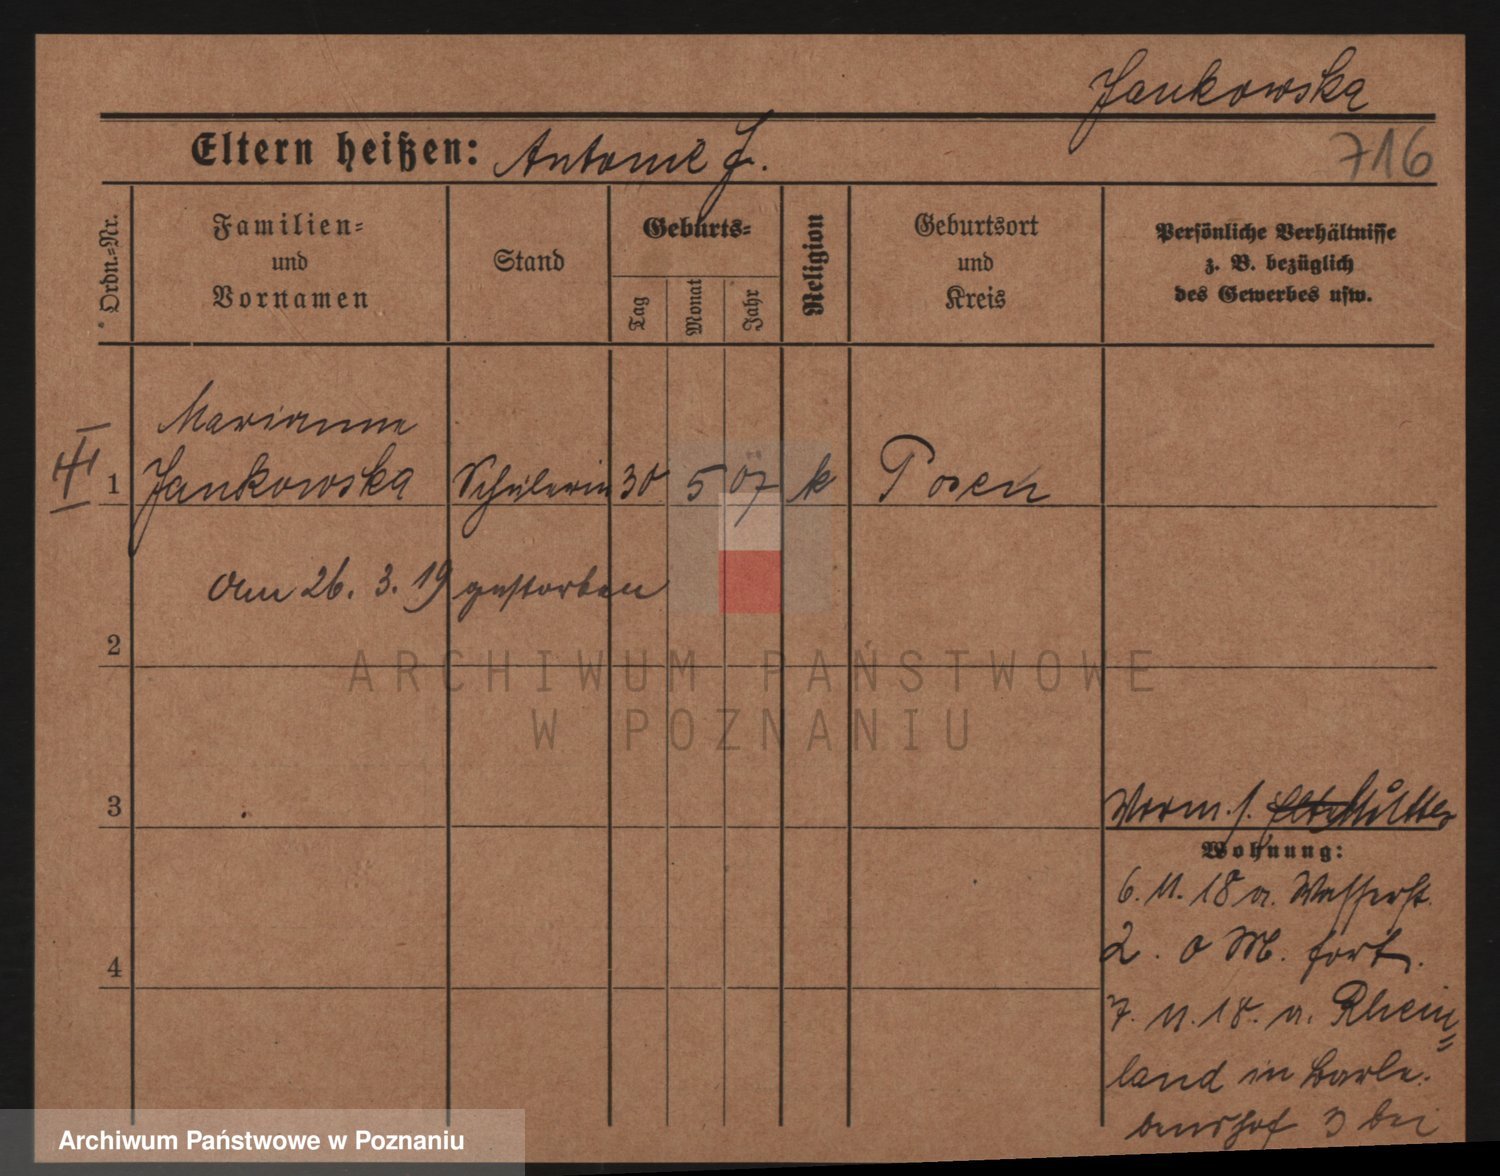 Jankowska
716
Eltern heißen: Antonie J.
Ordn.-Nr.
Familien-
und
Vornamen
Stand
Geburts-
Tag
Monat
Jahr
Religion
Geburtsort
und
Kreis
Persönliche Verhältnisse
z. B. bezüglich
des Gewerbes usw.
Marianna
1 Jankowska Schülerin 30 5 07 k Posen
am 26. 3. 19 gestorben
2
ARCHIWUM PAŃSTWOWE
W POZNANIU
3
Vorm. s. Mutter
Wohnung:
6. 11. 18 a. Wasserst.
2. o M. fort.
4
7. 11. 18. n. Rhein-
land in
3 bei
Archiwum Państwowe w Poznaniu